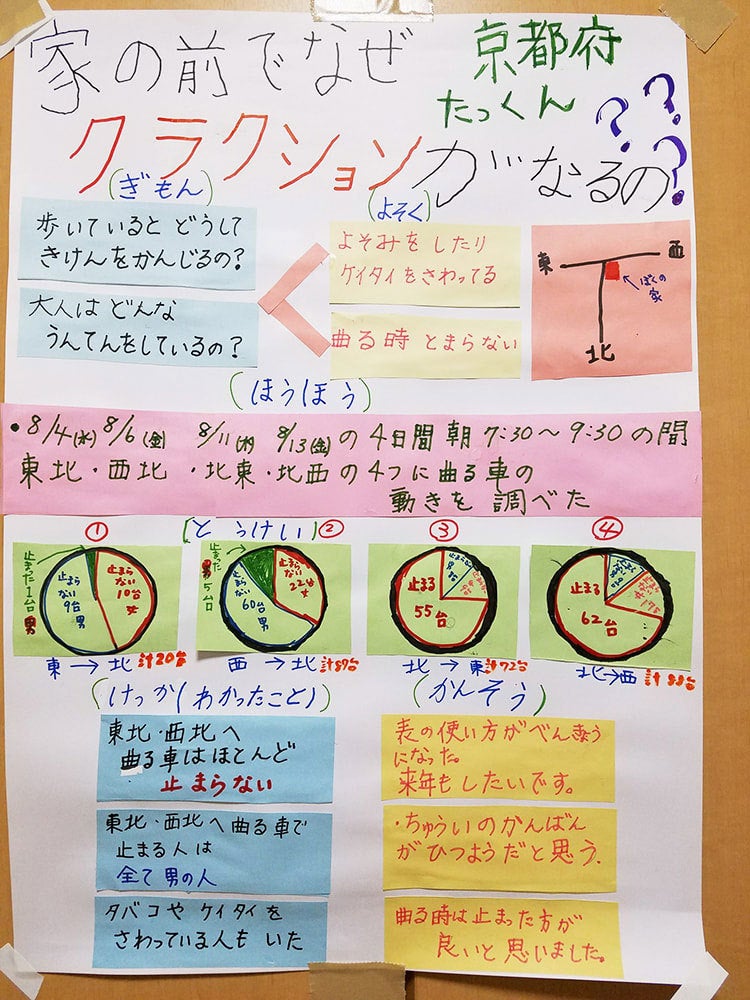 家の前でなぜ
京都府
たっくん
クラクションがなるの???
(ぎもん)
歩いていると どうして
きけんをかんじるの?
大人は どんな
うんてんをしているの?
(よそく)
よそみを したり
ケイタイをさわってる
曲る時 とまらない
東
西
ぼくの
家
北
(ほうほう)
・8/4(水) 8/6(金) 8/11(水) 8/13(金)の4日間 朝 7:30〜9:30の間
東北・西北・北東・北西の4つに曲る車の
動きを調べた
[とうけい]
①
止まった1台 男
止まらない
9台男
止まらない
10台
女
東→北 計20台
②
止まった
男5台
止まらない
60台男
止まらない
22台
女
西→北 計87台
③
止まる
55台
北→東 計72台
④
止まる
62台
北→西 計88台
(けっか(わかったこと)
東北・西北へ
曲る車はほとんど
止まらない
東北・西北へ曲る車で
止まる人は
全て男の人
タバコやケイタイを
さわっている人もいた
(かんそう)
表の使い方がべんきょう
になった。
来年もしたいです。
・ちゅういのかんばん
がひつようだと思う.
曲る時は止まった方が
良いと思いました。